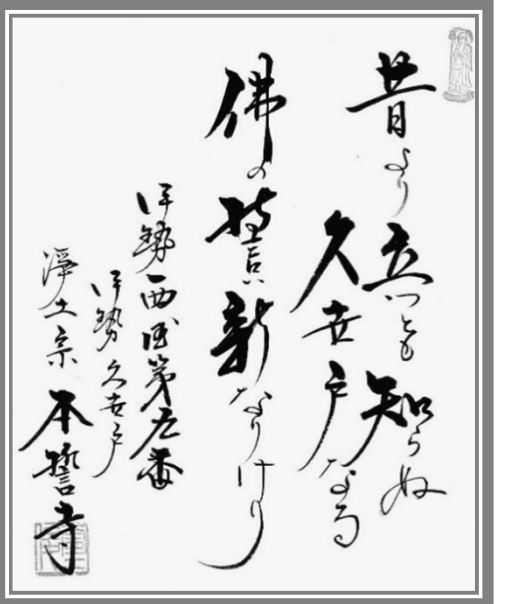 昔より立つとも知らぬ
久世戸なる
佛の誓新なりけり
伊勢西国第五番
伊勢久世戸
淨土宗本誓寺